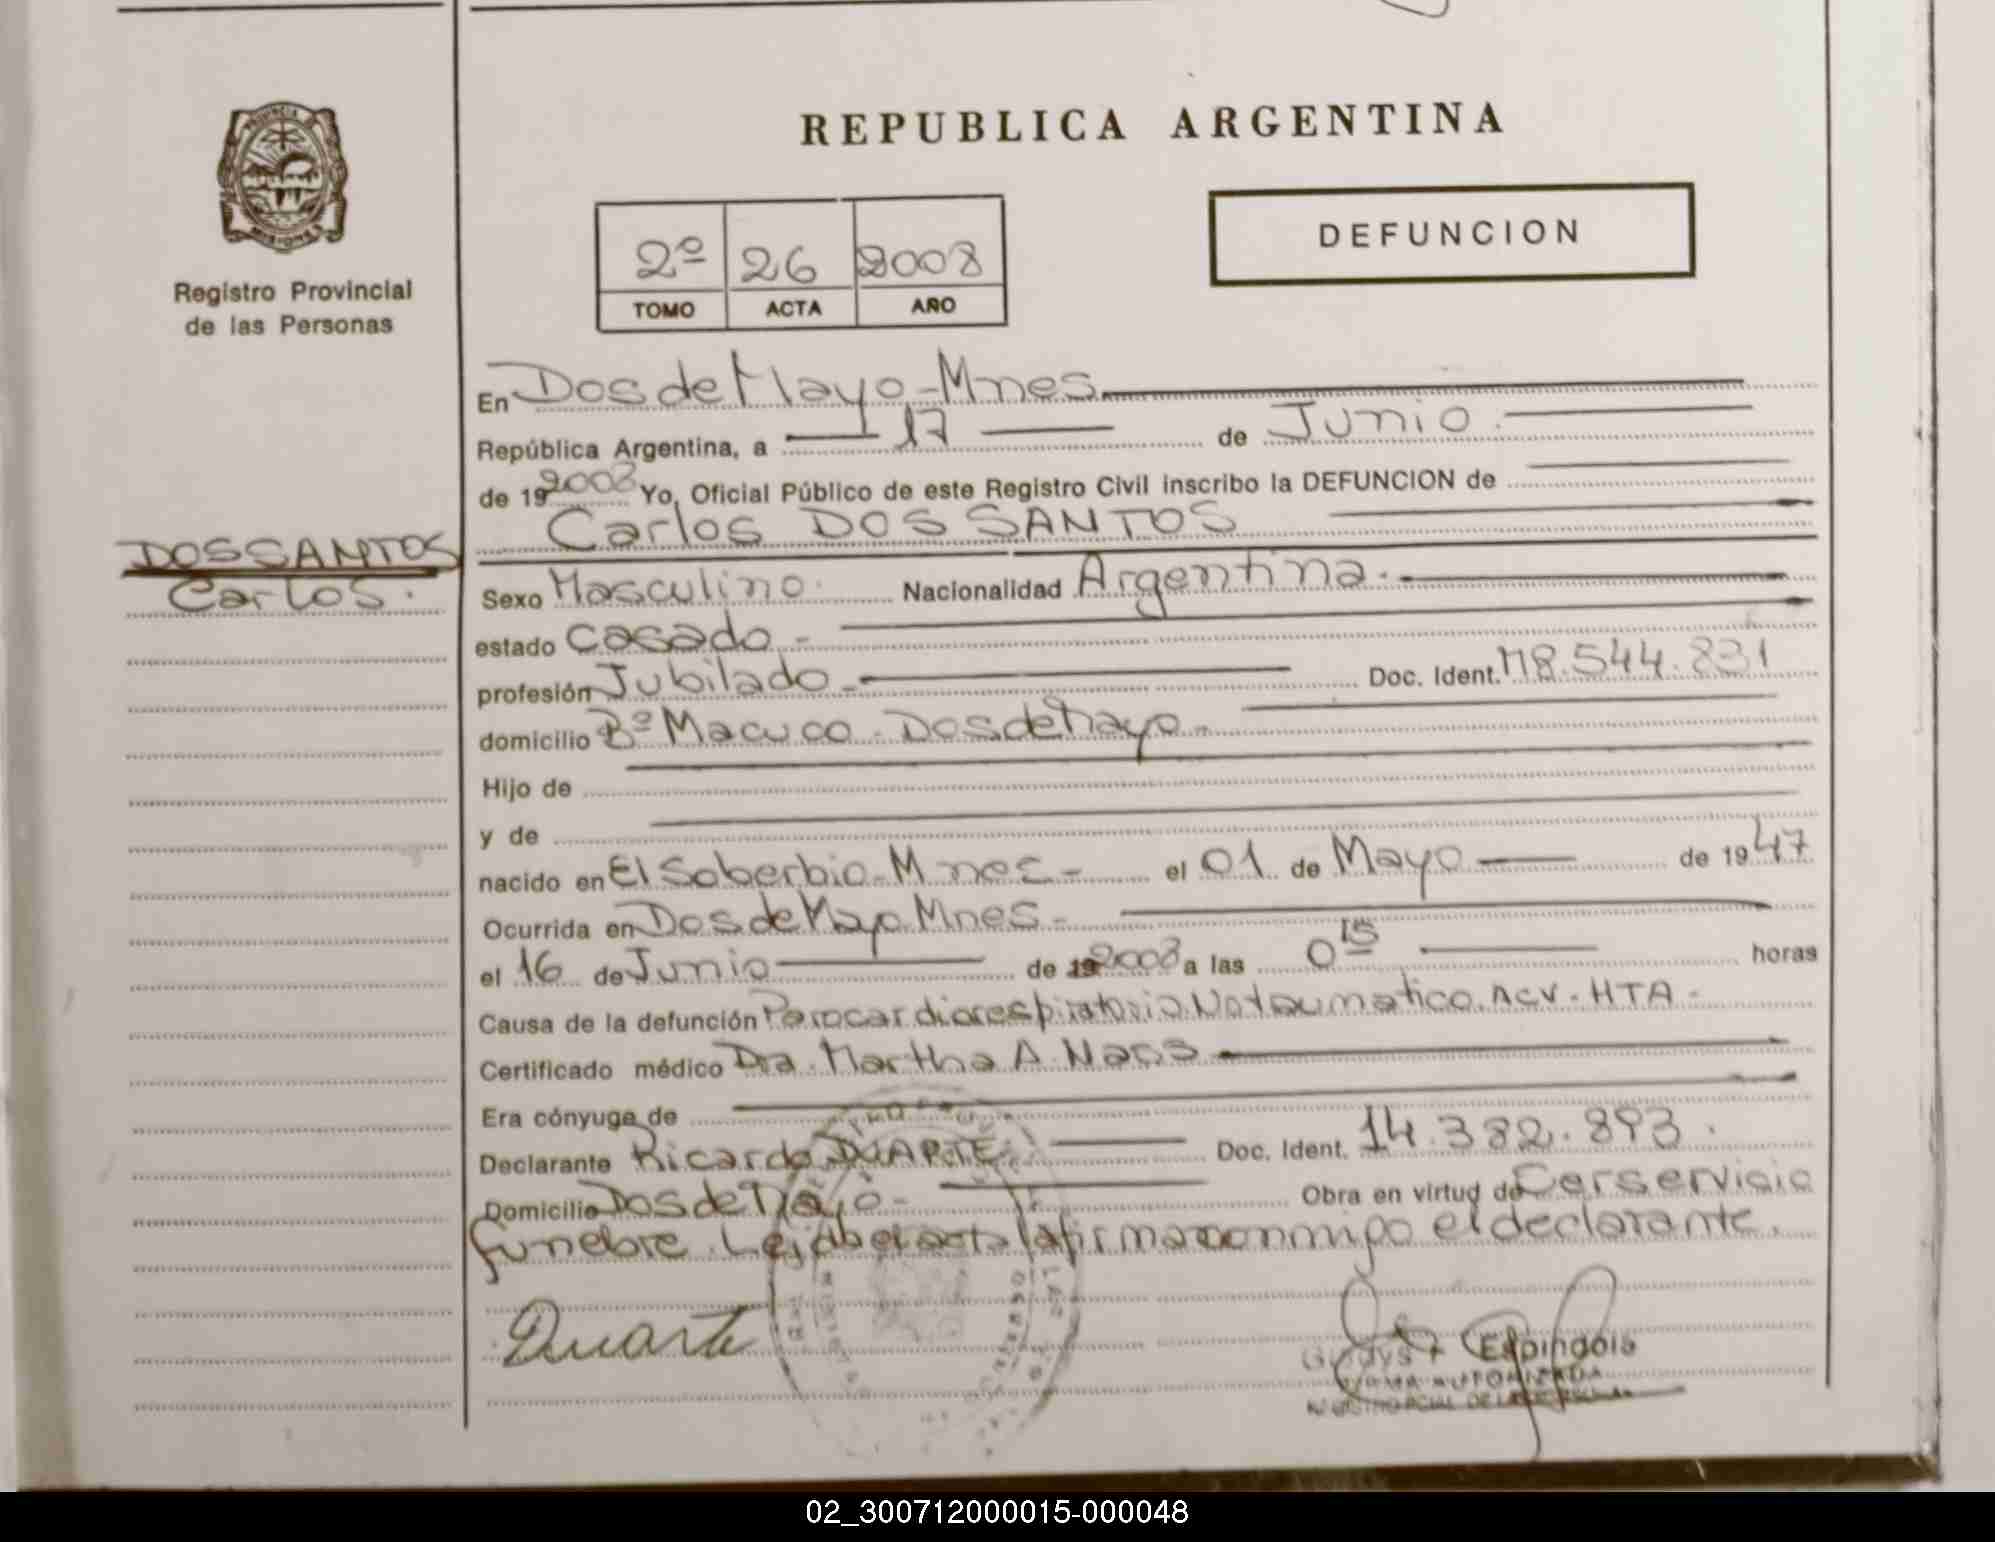 REPUBLICA ARGENTINA
PROVINCIA DE
MISIONES
Registro Provincial
de las Personas
DEFUNCION
2º 26 2008
TOMO ACTA AÑO
En Dos de Mayo - Mnes.
República Argentina, a 17 de Junio.
de 19 2008 Yo, Oficial Público de este Registro Civil inscribo la DEFUNCION de
Carlos DOS SANTOS
DOS SANTOS
Carlos.
Sexo Masculino. Nacionalidad Argentina.
estado Casado -
profesión Jubilado - Doc. Ident. M8.544.831
domicilio Bº Macuco - Dos de Mayo -
Hijo de
y de
nacido en El Soberbio - Mnes - el 01 de Mayo de 1947
Ocurrida en Dos de Mayo Mnes -
el 16 de Junio de 19 2008 a las 0 15 horas
Causa de la defunción Parocardiorespiratorio Notaumatico. ACV - HTA -
Certificado médico Dra. Martha A. Nass
Era cónyuge de
Declarante Ricardo DUARTE Doc. Ident. 14.382.893.
Domicilio Dos de Mayo - Obra en virtud de Cerservicio
funebre. Leida el acta la firma conmigo el declarante.
Duarte
Gladys Espindola
FIRMA AUTORIZADA
02_300712000015-000048